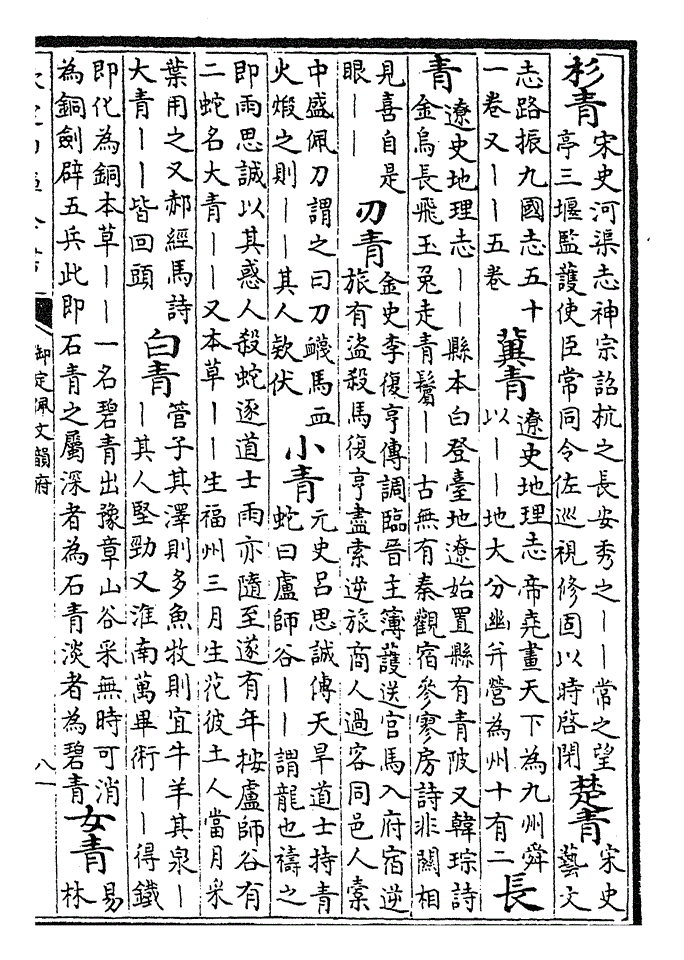 杉青宋史河渠志神宗詔杭之長安秀之丨丨常之望
亭三堰監護使臣常同令佐巡視修固以時啓閉楚青宋史
藝文
志路振九國志五十
一卷又丨丨五卷冀青遼史地理志帝堯畫天下為九州舜
以丨丨地大分幽并營為州十有二長
青遼史地理志丨丨縣本白登臺地遼始置縣有青陂又韓琮詩
金烏長飛玉兔走青鬢丨丨古無有秦觀宿參寥房詩非關相
見喜自是
眼丨丨刃青金史李復亨傳調臨晉主簿護送官馬入府宿逆
旅有盜殺馬復亨盡索逆旅商人過客同邑人橐
中盛佩刀謂之曰刀衊馬血
火煅之則丨丨其人欵伏小青元史呂思誠傳天旱道士持青
蛇曰盧師谷丨丨謂龍也禱之
即雨思誠以其惑人殺蛇逐道士雨亦隨至遂有年按盧師谷有
二蛇名大青丨丨又本草丨丨生福州三月生花彼土人當月采
葉用之又郝經馬詩
大青丨丨皆回頭白青管子其澤則多魚牧則宜牛羊其泉丨
丨其人堅勁又淮南萬畢術丨丨得鐵
即化為銅本草丨丨一名碧青出豫章山谷采無時可消
為銅劍辟五兵此即石青之屬深者為石青淡者為碧青女青易
林
御定佩文韻府
八一